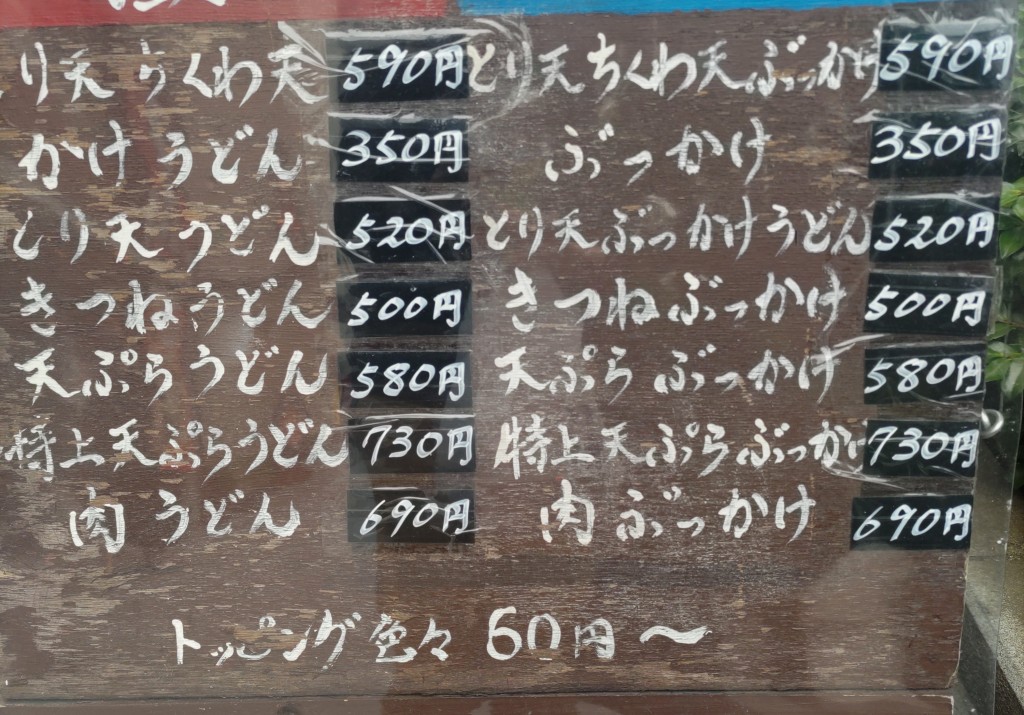 とり天ちくわ天 590円 とり天ちくわ天ぶっかけ 590円
かけうどん 350円 ぶっかけ 350円
とり天うどん 520円 とり天ぶっかけうどん 520円
きつねうどん 500円 きつねぶっかけ 500円
天ぷらうどん 580円 天ぷらぶっかけ 580円
特上天ぷらうどん 730円 特上天ぷらぶっかけ 730円
肉うどん 690円 肉ぶっかけ 690円
トッピング色々 60円〜